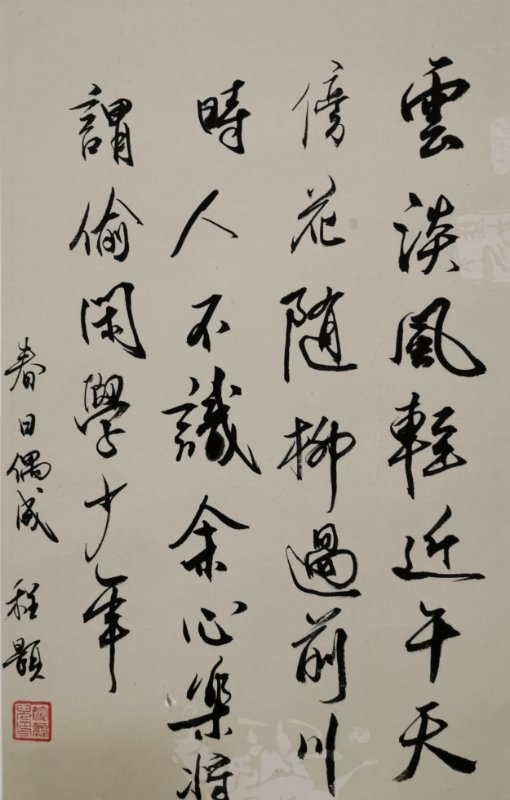 雲淡風輕近午天
傍花随柳過前川
時人不識余心樂將
謂偷閑學少年
春日偶成 程顥